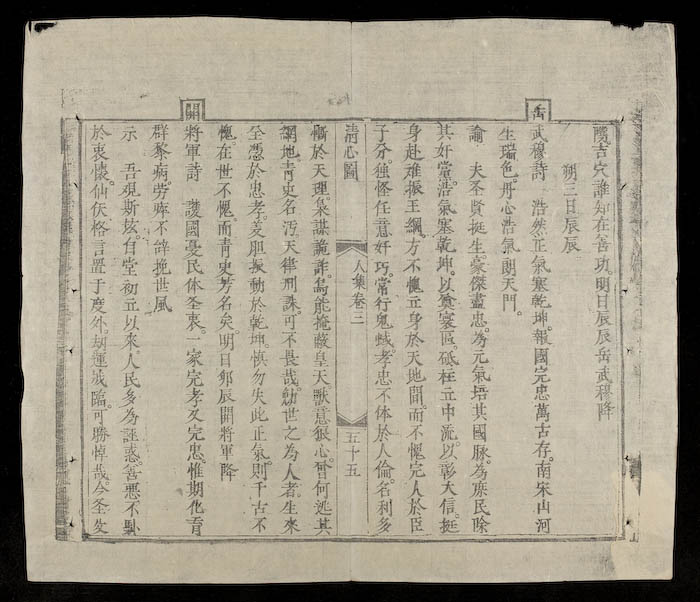 隲吉穴誰知在善功。明日辰辰岳武穆降
朔三日辰辰
岳武穆詩 浩然正氣塞乾坤。報國完忠萬古存。南宋山河
生瑞色。丹心浩氣朗天門。
諭 夫圣賢挺生。豪傑盡忠。為元氣培其國脉。為庶民除
其奸黨。浩氣塞乾坤。以奠寰區。砥柱立中流。以彰大信。挺
身赴难。振王綱。方不愧立身於天地間。而不愧完人於臣
子分。独怪任意奸巧。常行鬼蜮。孝忠不体於人倫。名利多
清心圖
人集卷三
五十五
慚於天理。梟謀詭詐。烏能掩蔽皇天。獸意狠心。曾何逃其
網地。青史名汚。天律刑誅。可不畏哉。勉世之為人者。生來
全憑於忠孝。義胆振動於乾坤。慎勿失此正氣。則千古不
愧。在世不愧。而青史芳名矣。明日卯辰開將軍降
開將軍詩 護國憂民体圣衷。一家完孝又完忠。惟期化育
群黎病。劳瘁不辞挽世風
示 吾观斯炫自堂初立以來。人民多為誣惑。善悪不馭
於衷懷。仙仸格言。置于度外。刼運咸臨。可勝悼哉。今圣炆